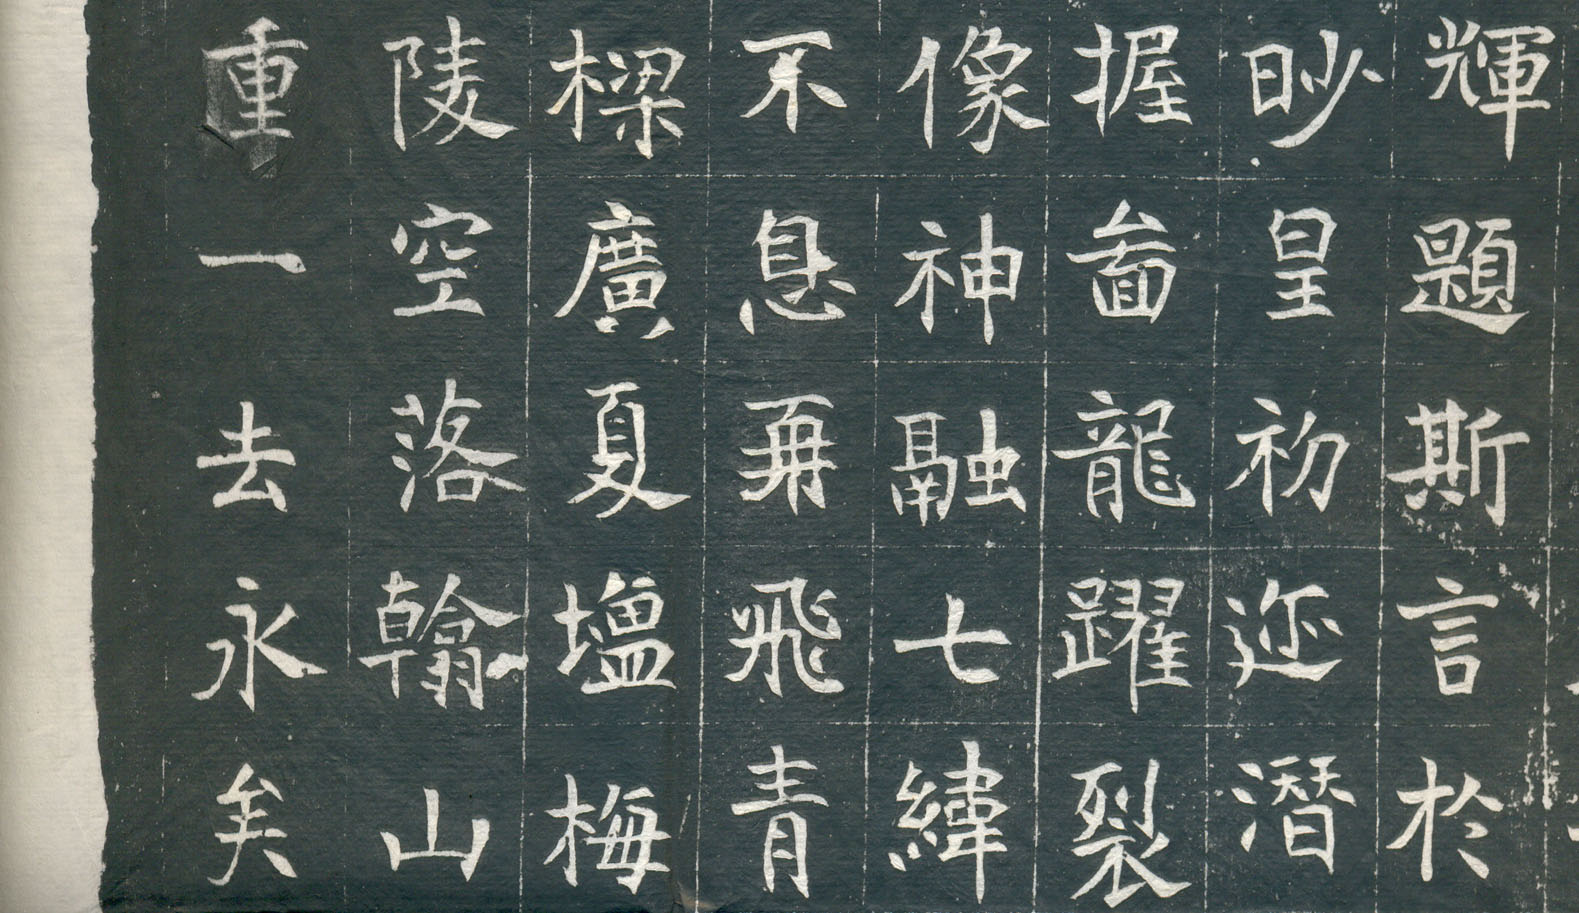 輝題斯言於
眇皇初迩潜
握啚龍躍裂
像神融七緯
不息再飛青
樑廣夏塭梅
陵空落翰山
重一去永矣